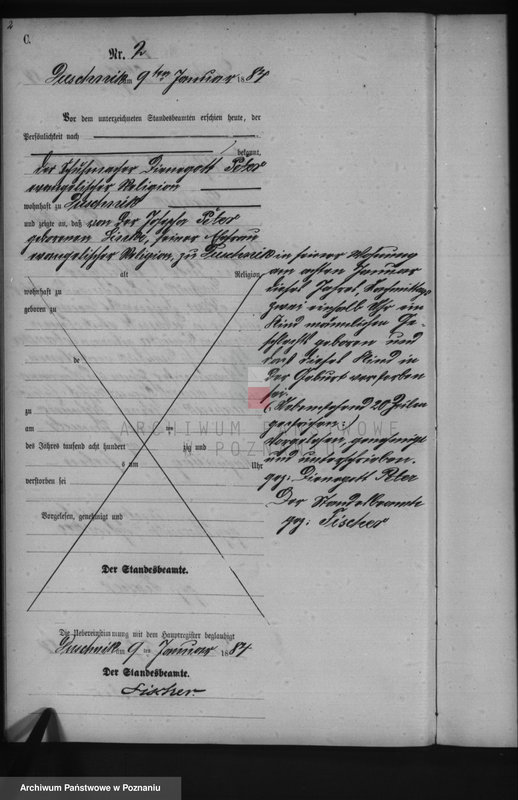 2
C.
Nr. 2
Duschnik am 9ten Januar 1884
Vor dem unterzeichneten Standesbeamten erschien heute, der
Persönlichkeit nach
bekannt,
der Schuhmacher Dienegott Peter
evangelischer Religion
wohnhaft zu Duschnik
und zeigte an, daß von der Josepha Peter
geborenen Linke, seiner Ehefrau
evangelischer Religion, zu Duschnik in seiner Wohnung
alt Religion,
wohnhaft zu
geboren zu
de
zu
am ten
des Jahres tausend acht hundert zig und
s um Uhr
verstorben sei
Vorgelesen, genehmigt und
Der Standesbeamte.
am ersten Januar
dieses Jahres Nachmittags
zwei einhalb Uhr ein
Kind männlichen Ge-
schlechts geboren und
daß dieses Kind in
der Geburt verstorben
sei.
Vorstehend 20 Zeilen
gestrichen.
Vorgelesen, genehmigt
und unterschrieben.
gez: Dienegott Peter
Der Standesbeamte
gez: Fischer
Die Uebereinstimmung mit dem Hauptregister beglaubigt
Duschnik am 9 ten Januar 1884
Der Standesbeamte.
Fischer
ARCHIWUM PAŃSTWOWE
W POZNANIU
Archiwum Państwowe w Poznaniu